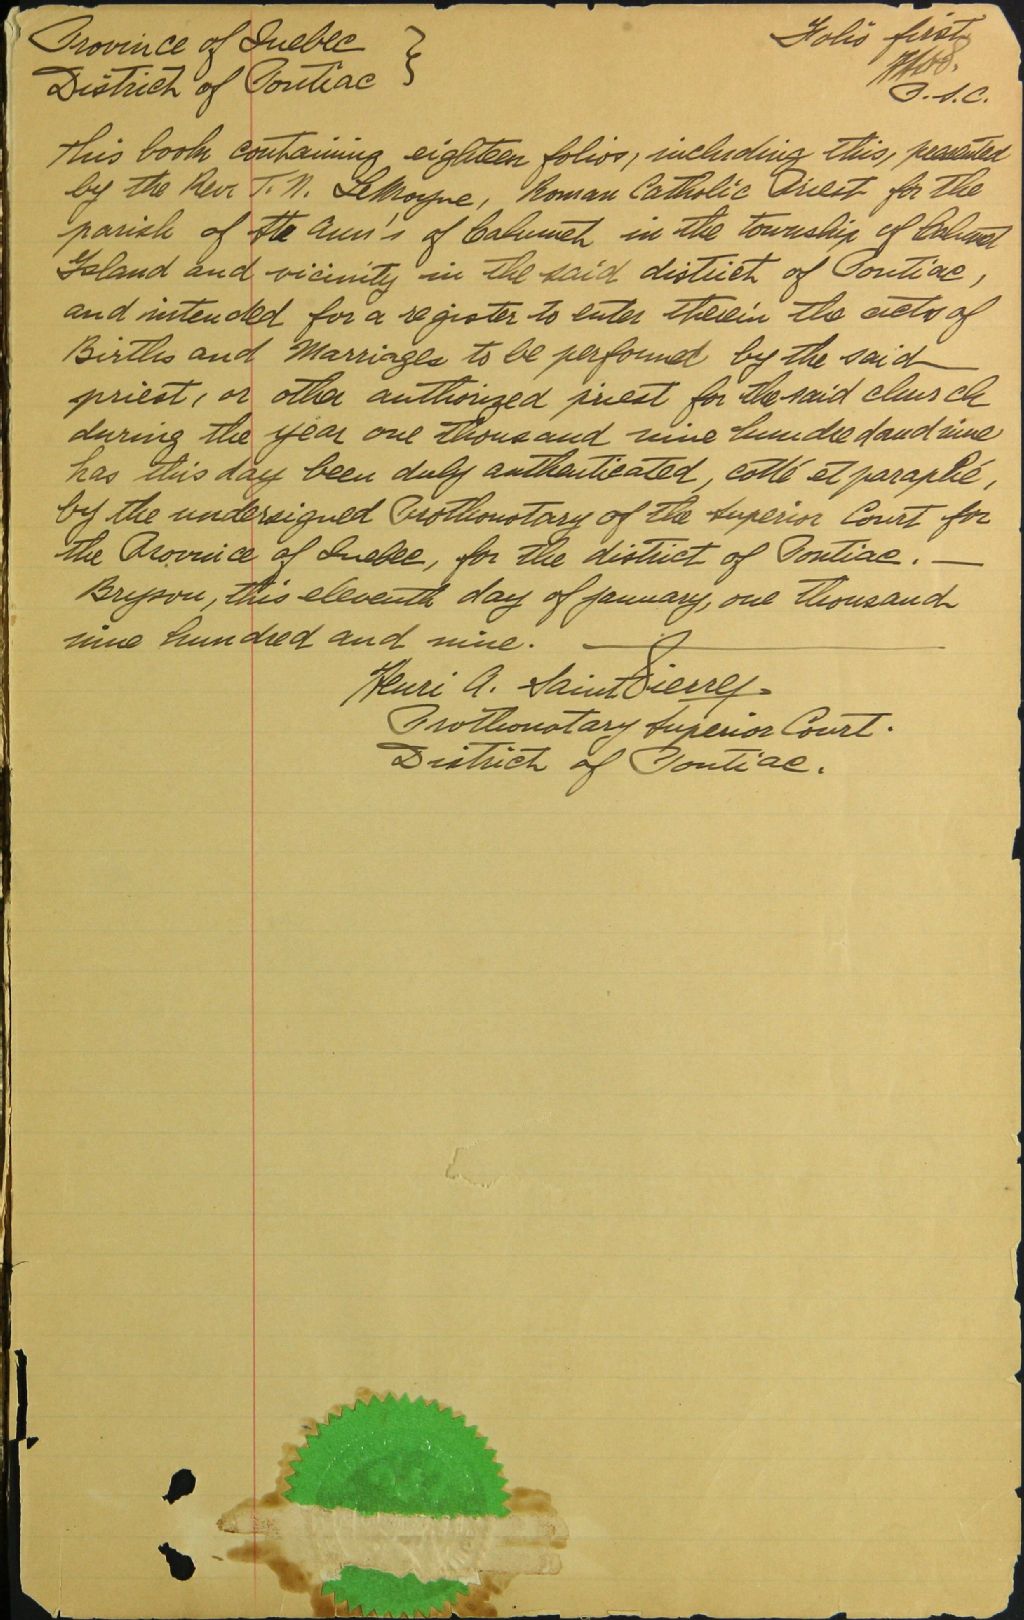 Province of Quebec }
District of Pontiac
Folio first
P.S.C.
This book containing eighteen folios, including this, presented
by the Rev. T. N. LeMoyne, Roman Catholic Priest for the
parish of Ste Ann's of Calumet in the township of Calumet
Island and vicinity in the said district of Pontiac,
and intended for a register to enter therein the acts of
Births and Marriages to be performed by the said
priest, or other authorized priest for the said church
during the year one thousand nine hundred and nine
has this day been duly authenticated, cotté et paraphé,
by the undersigned Prothonotary of the Superior Court for
the Province of Quebec, for the district of Pontiac. —
Bryson, this eleventh day of january, one thousand
nine hundred and nine. —
Henri A. Saint Pierre
Prothonotary Superior Court.
District of Pontiac.